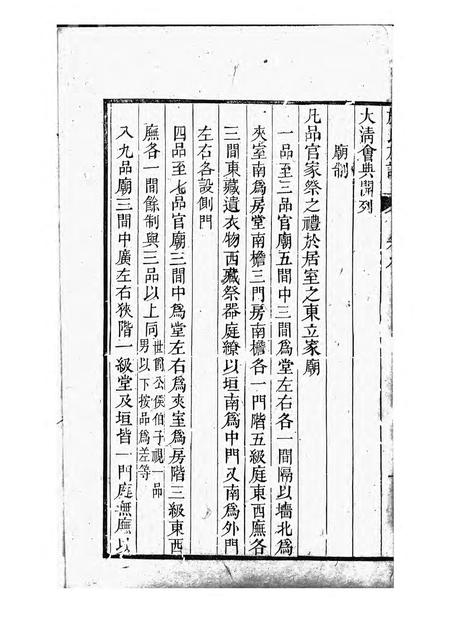 大清會典開列
廟制
凡品官家祭之禮於居室之東立家廟
一品至三品官廟五間中三間爲堂左右各一間隔以墻北爲
夾室南爲房堂南檐三門房南檐各一門階五級庭東西廡各
三間東藏遺衣物西藏祭器庭繚以垣南爲中門又南爲外門
左右各設側門
四品至七品官廟三間中爲堂左右爲夾室爲房階三級東西
廡各一間餘制與三品以上同世爵公侯伯子視一品
男以下按品爲差等
八九品廟三間中廣左右狹階一級堂及垣皆一門庭無廡以